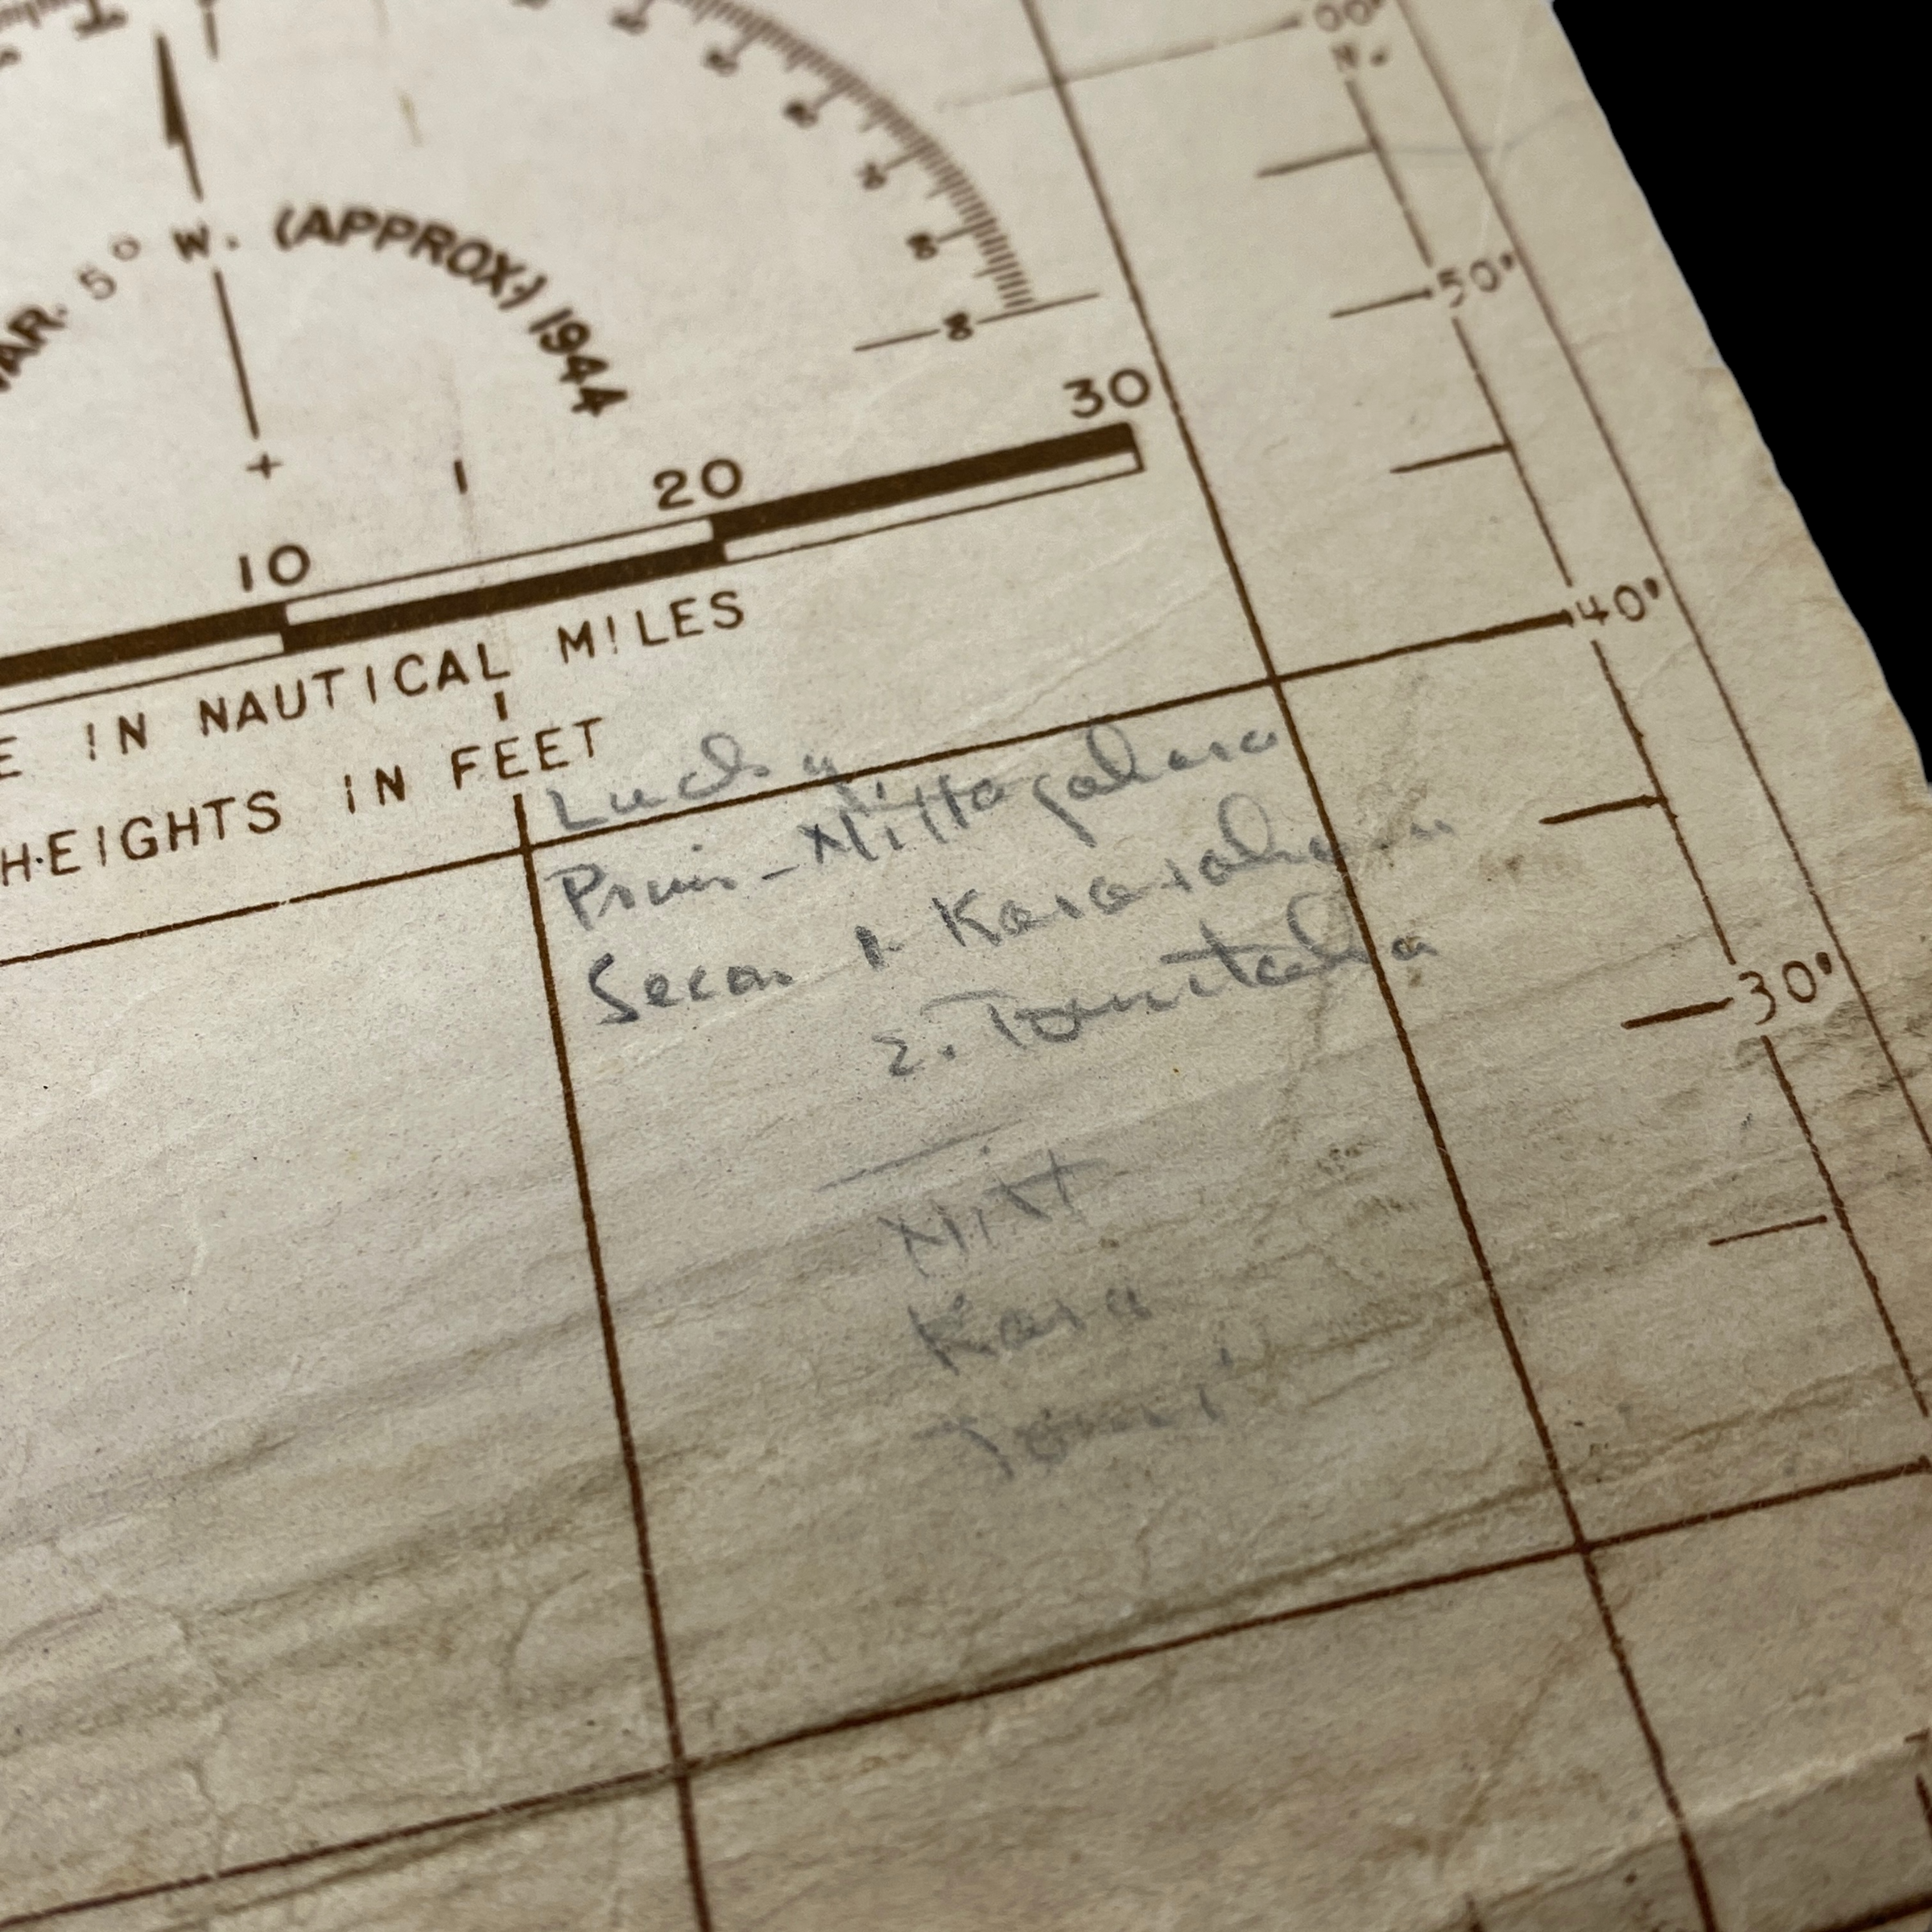 00'
N.
VAR. 5° W. (APPROX.) 1944
50'
30
20
10
40'
E IN NAUTICAL MILES
HEIGHTS IN FEET
Lucky
Prim - Nittagahara
Secon 1. Kasa
2. Tomitaka
30'
Nitt
Kasa
Tomi